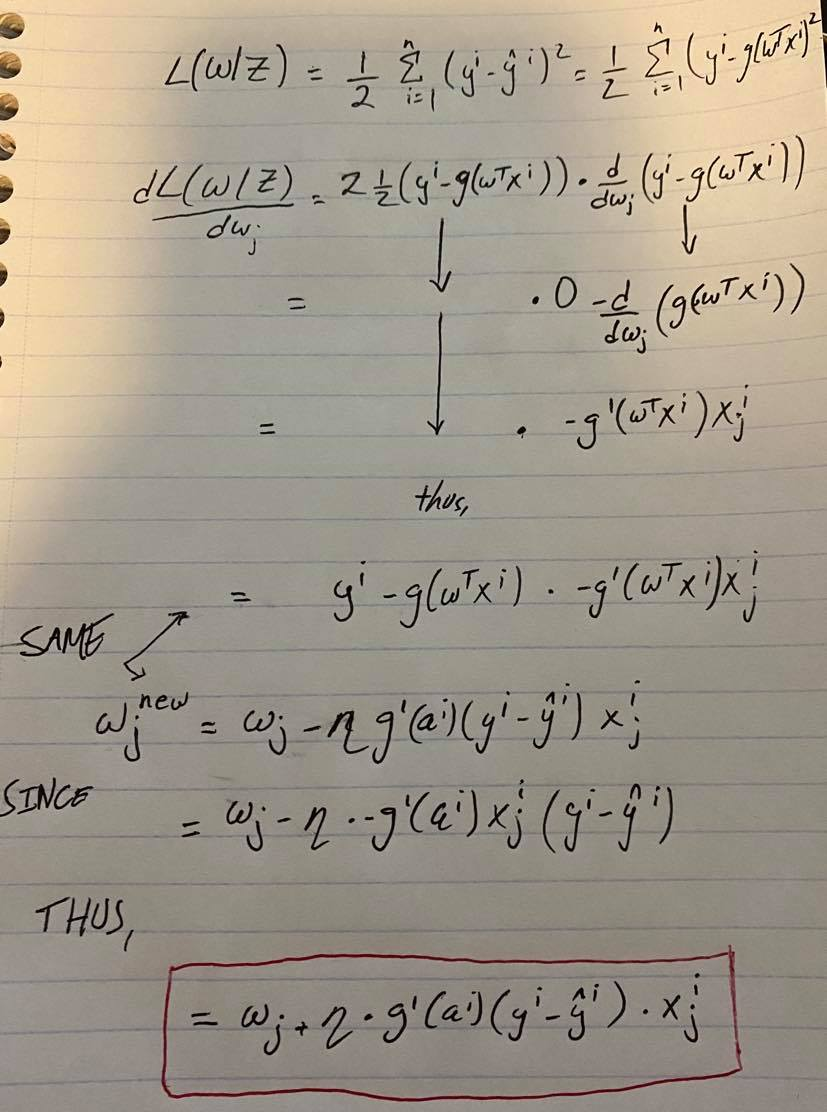 L(ω/Z) = 1/2 Σ_{i=1}^{n} (y^i - ŷ^i)^2 = 1/2 Σ_{i=1}^{n} (y^i - g(ω^T x^i)^2
dL(ω/Z)/dω_j = 2 1/2 (y^i - g(ω^T x^i)) · d/dω_j (y^i - g(ω^T x^i))
= ↓ · 0 - d/dω_j (g(ω^T x^i))
= ↓ · -g'(ω^T x^i) x_j^i
thus,
= y^i - g(ω^T x^i) · -g'(ω^T x^i) x_j^i
SAME
ω_j^{new} = ω_j - η g'(a^i)(y^i - ŷ^i) x_j^i
SINCE
= ω_j - η · -g'(a^i) x_j^i (y^i - ŷ^i)
THUS,
= ω_j + η · g'(a^i)(y^i - ŷ^i) · x_j^i